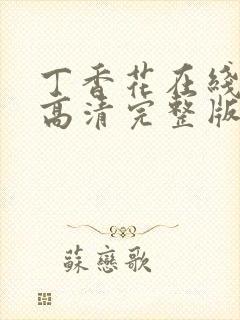 丁香花在线
高清完整版
蘇戀歌